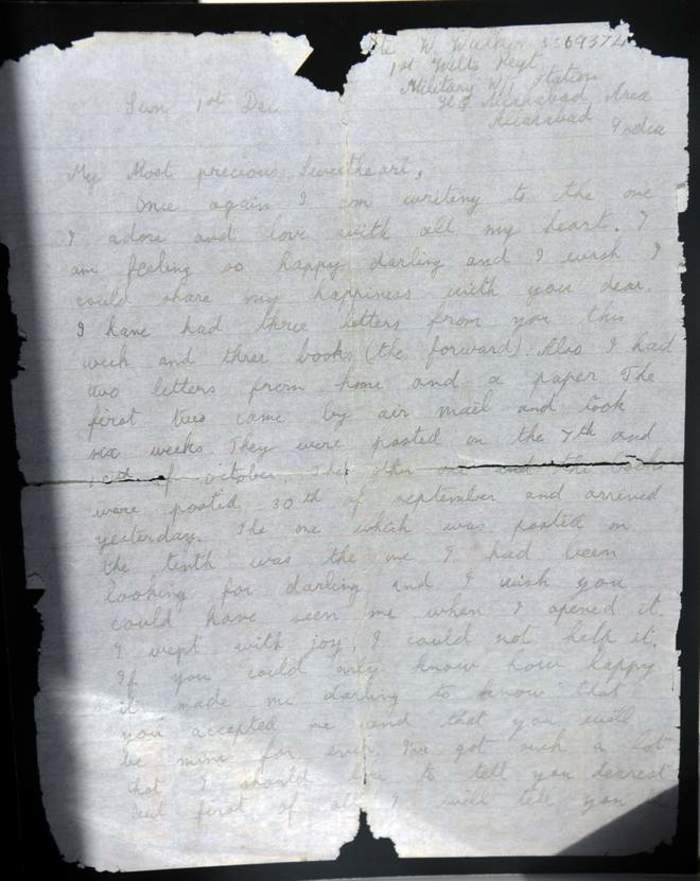 Pte W. Walker 5569374
1st Wilts Regt
Military W/T Station
HQ Allahabad Area
Allahabad India
Sun 1st Dec
My Most precious Sweetheart,
Once again I am writing to the one
I adore and love with all my heart. I
am feeling so happy darling and I wish I
could share my happiness with you dear.
I have had three letters from you this
week and three books (the forward). Also I had
two letters from home and a paper The
first two came by air mail and took
six weeks. They were posted on the 7th and
10th of October. The other one and the books
were posted 30th of september and arrived
yesterday. The one which was posted on
the tenth was the one I had been
looking for darling and I wish you
could have seen me when I opened it.
I wept with joy, I could not help it.
If you could only know how happy
it made me darling to know that
you accepted me and that you will
be mine for ever. I've got such a lot
that I should like to tell you dearest
but first of all I will tell you